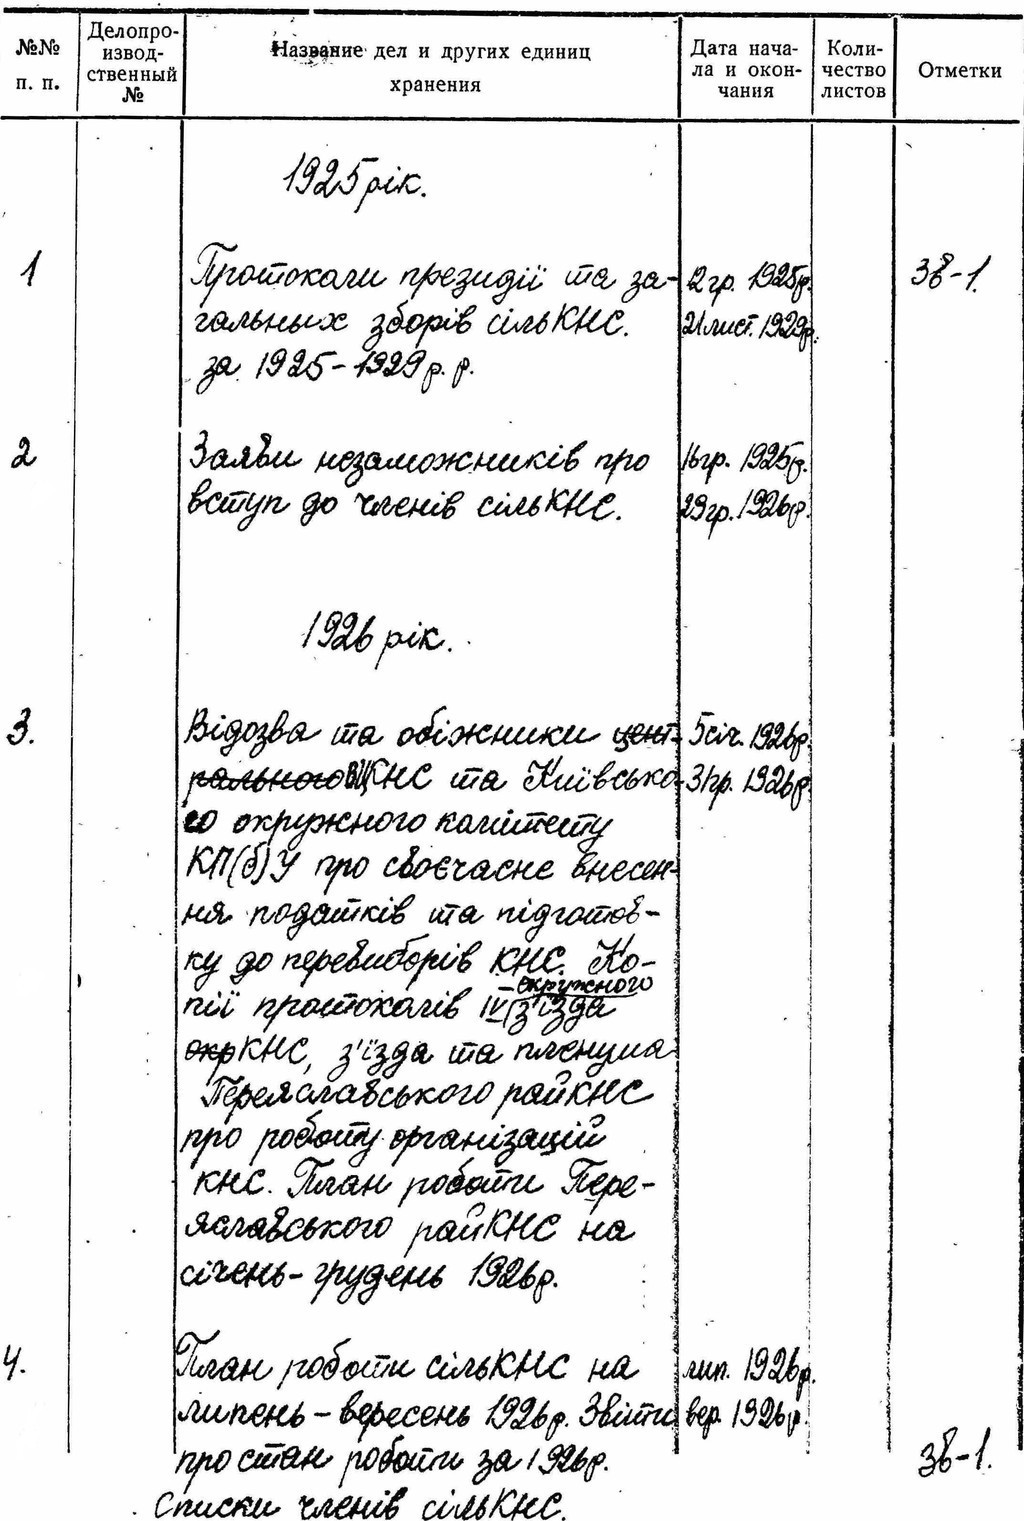 №№ п. п.
Делопро-
извод-
ственный
№
Название дел и других единиц
хранения
Дата нача-
ла и окон-
чания
Коли-
чество
листов
Отметки
1925 рік.
1
Протоколи президії та за- 2 гр. 1925р. Зв-1.
гальных зборів сільКНС. 21 лист. 1929р.
за 1925-1929 р. р.
2
Заяви незаможників про 16 гр. 1925р.
вступ до членів сільКНС. 29 гр. 1926р.
1926 рік.
3.
Відозва та обіжники цент- 5 січ. 1926р.
рального ВЦКНС та Київсько- 31 гр. 1926р.
го окружного комітету
КП(б)У про своєчасне внесен-
ня податків та підготов-
ку до перевиборів КНС. Ко-
пії протоколів IV окружного з'їзда
окрКНС, з'їзда та пленума
Переяславського райКНС
про роботу організацій
КНС. План роботи Пере-
яславського райКНС на
січень-грудень 1926р.
4.
План роботи сільКНС на лип. 1926р.
липень-вересень 1926р. Звіти вер. 1926р.
про стан роботи за 1926р. Зв-1.
Списки членів сільКНС.